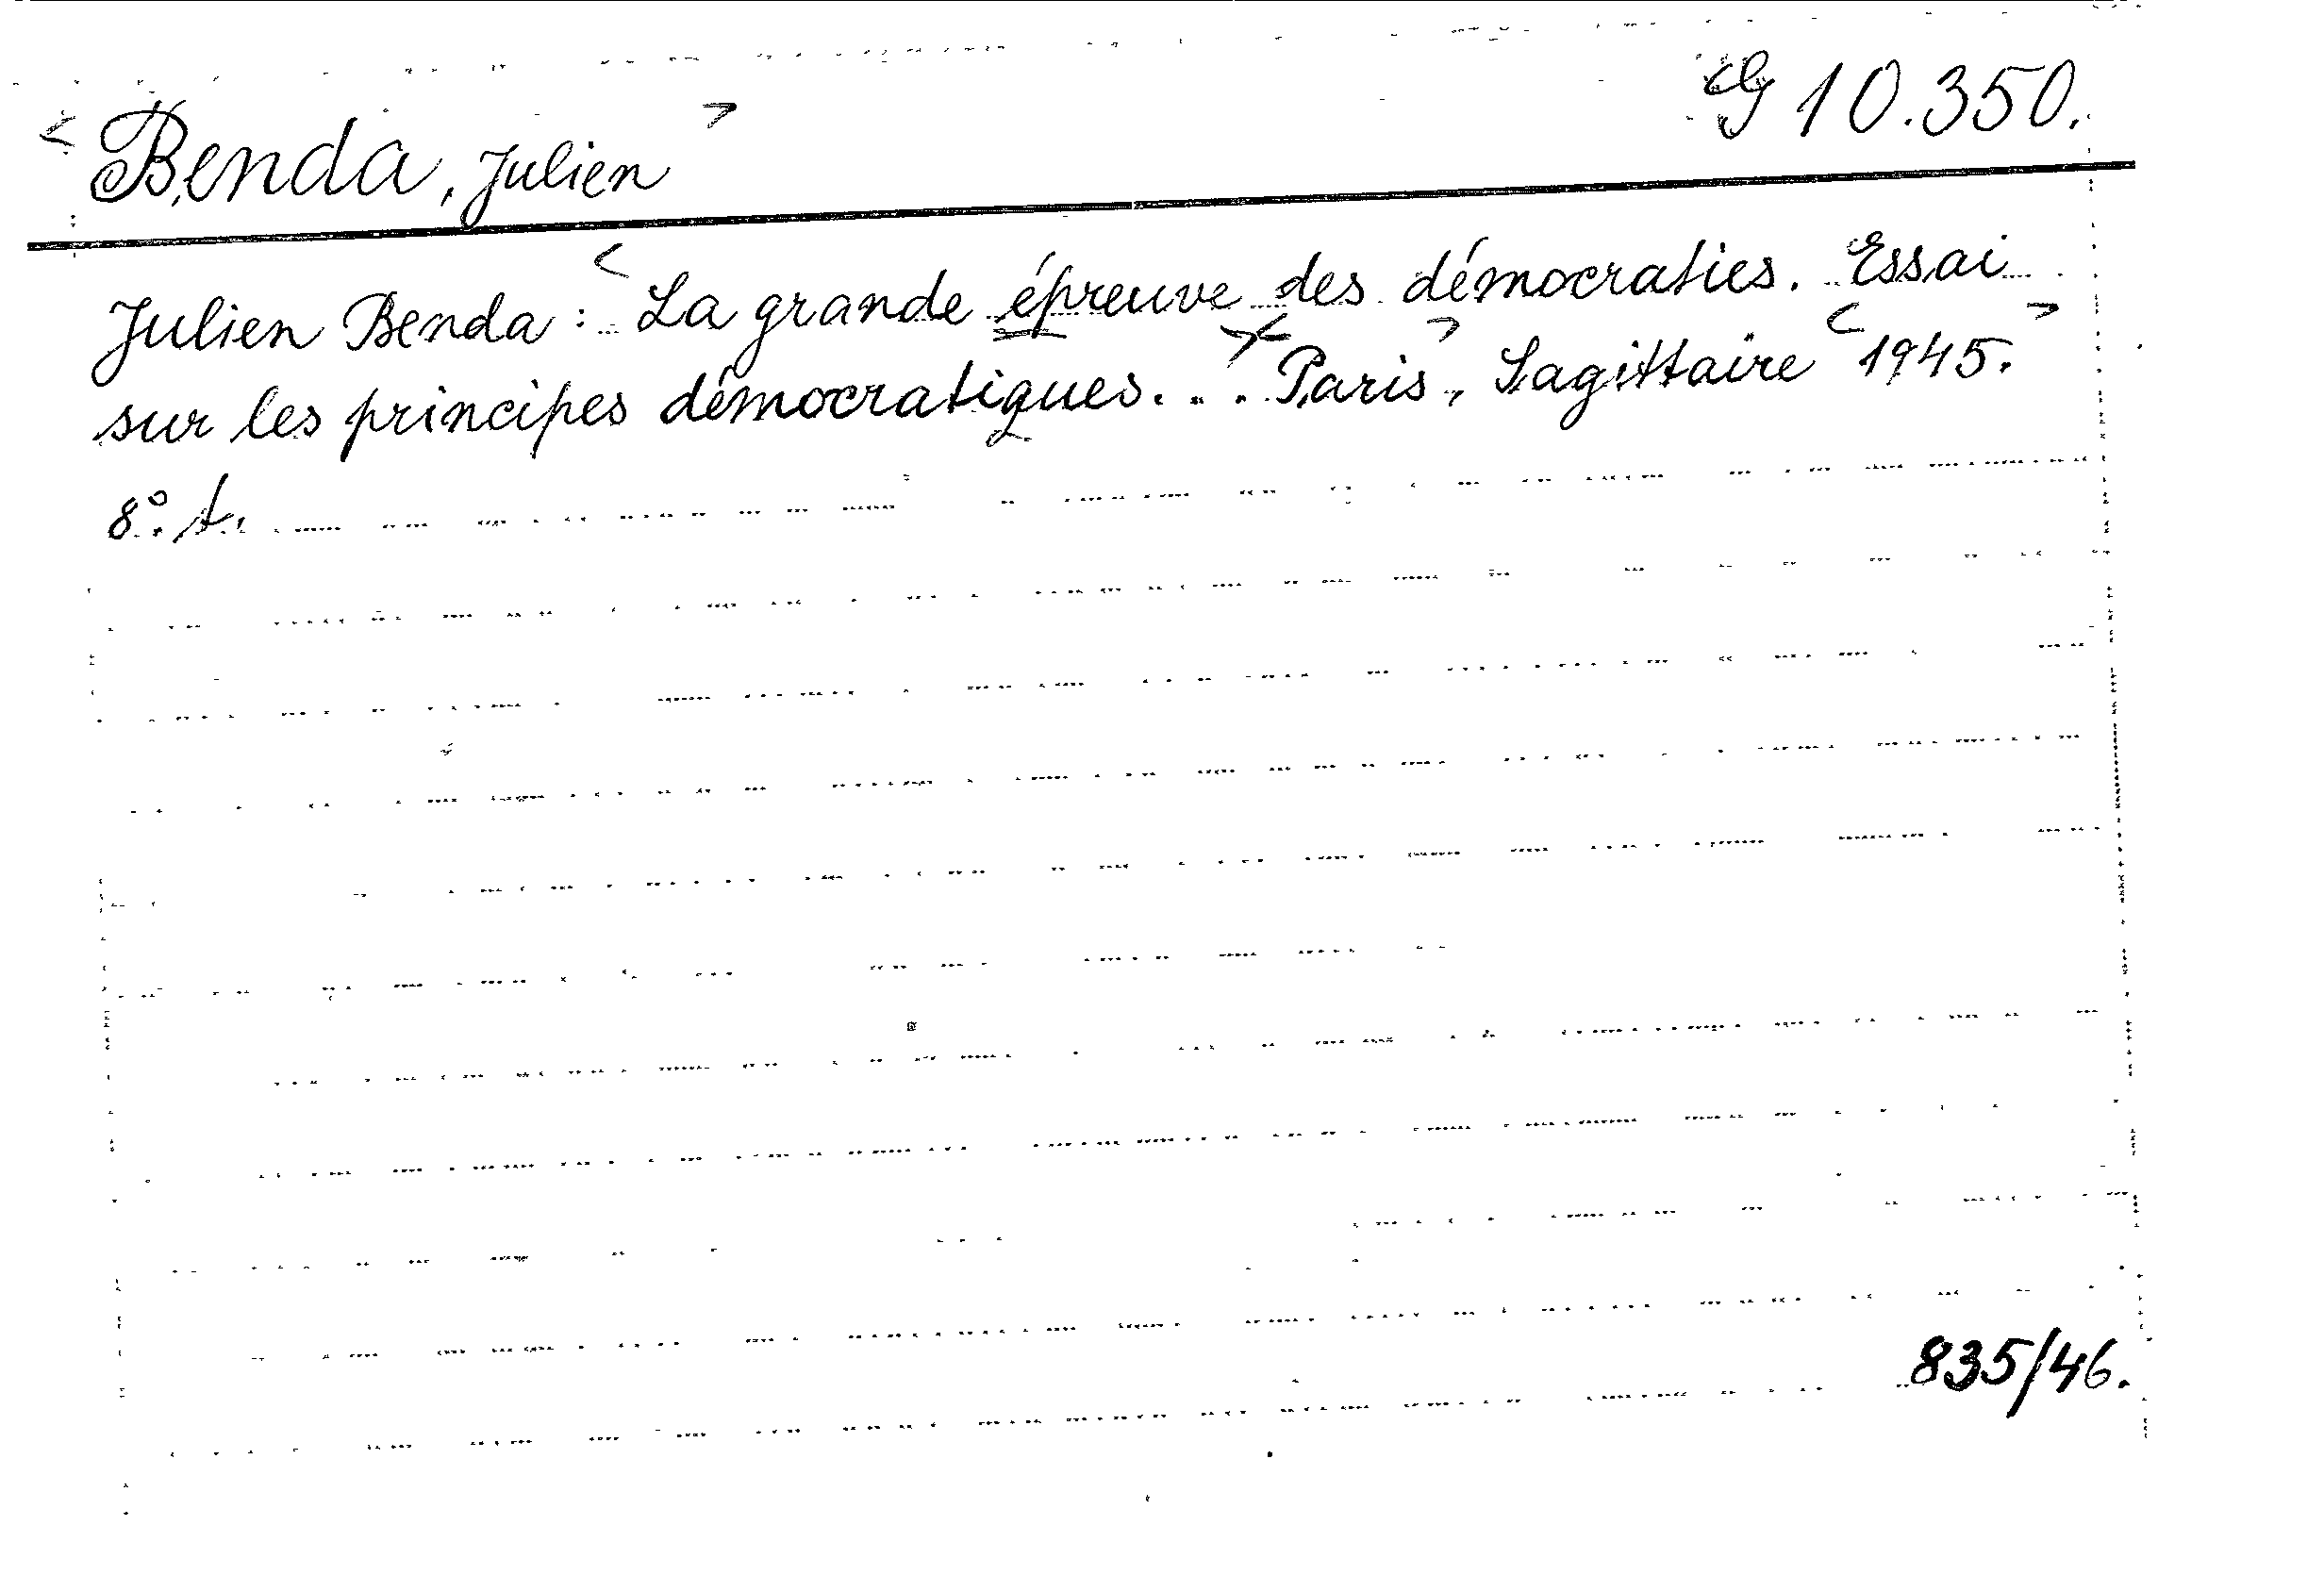 <Benda, Julien> G 10.350.
Julien Benda: <La grande épreuve des démocraties. Essai
sur les principes démocratiques.>.. <Paris>, Sagittaire <1945.>
8°. t.
835/46.